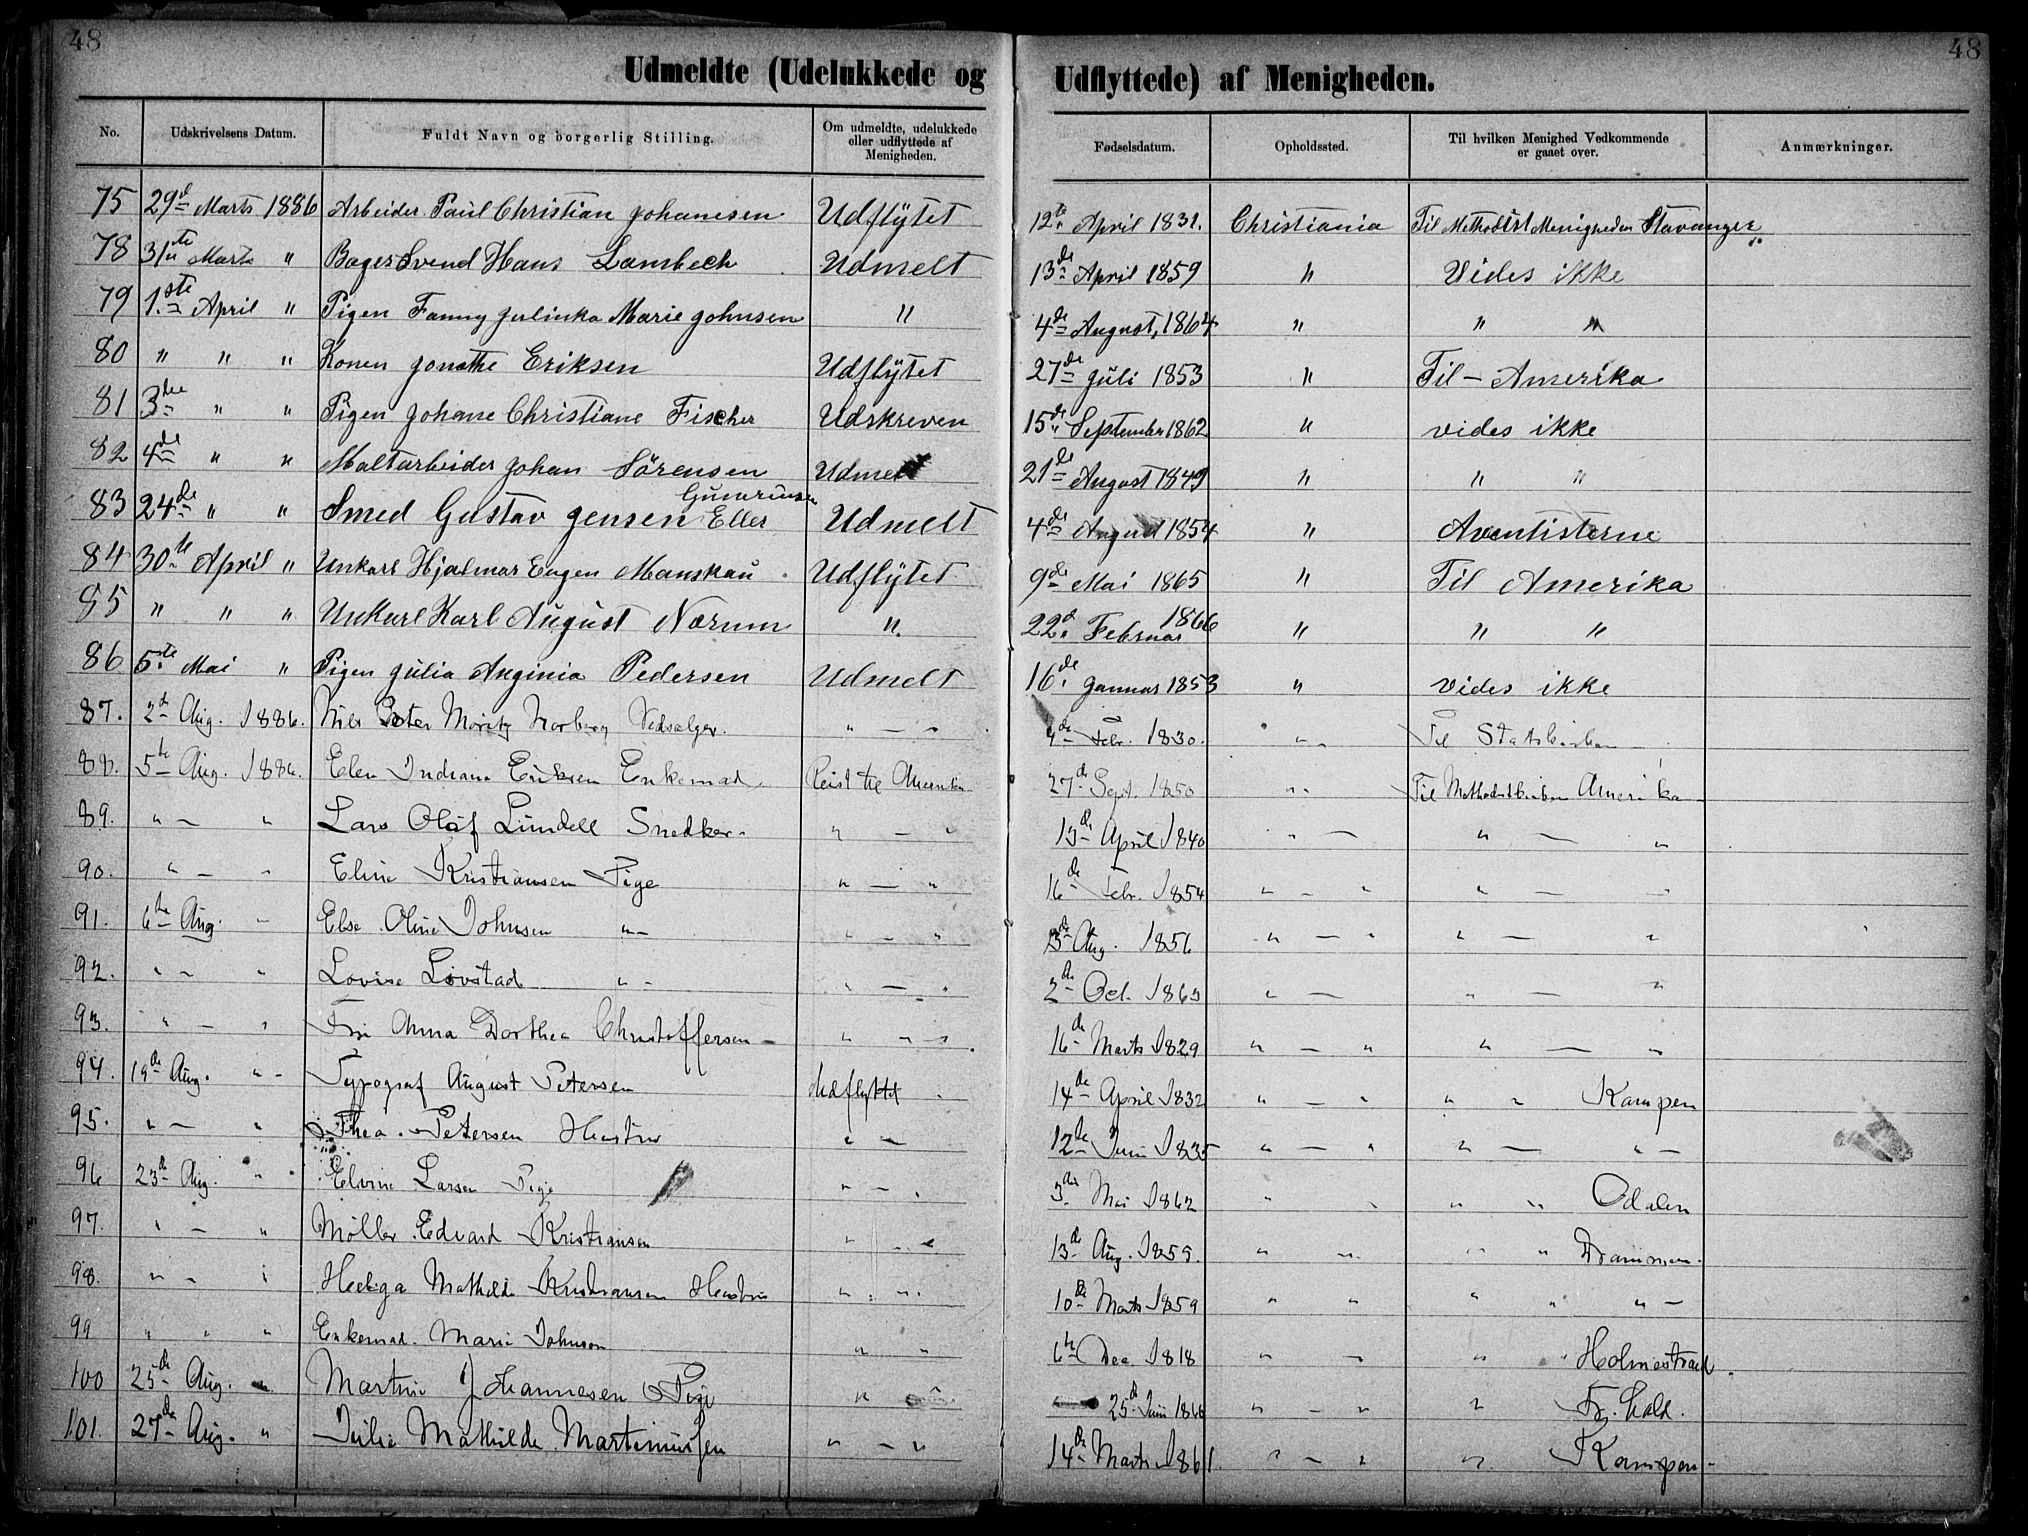 48
48
Udmeldte (Udelukkede og Udflyttede) af Menigheden.
No. Udskrivelsens Datum. Fuldt Navn og borgerlig Stilling. Om udmeldte, udelukkede eller udflyttede af Menigheden. Fødselsdatum. Opholdssted. Til hvilken Menighed Vedkommende er gaaet over. Anmærkninger.
75 29d Marts 1886 Arbeider Paul Christian Johanesen Udflÿtet 12te April 1831. Christiania Til Methodist Menigheden Stavanger
78 31te Marts " Bager Svend Hans Lambech Udmelt 13de April 1859 " Vides ikke
79 1ste April " Pigen Fanny Julinka Marie Johnsen " 4de August, 1864 " " "
80 " " " Konen Jonette Eriksen Udflÿtet 27de Juli 1853 " Til - Amerika
81 3die " " Pigen Johane Christiane Fischer Udskreven 15de September 1862 " vides ikke
82 4de " " Maltarbeider Johan Sörensen Udmelt 21de August 1849 " " "
83 24de " " Smed Gustav Jensen Eller Udmelt 4de August 1854 " Aventisterne
84 30te April " Unkarl Hjalmar Eugen Manskau Udflÿtet 9de Mai 1865 " Til Amerika
85 " " " Unkarl Karl August Nærum " 22d Februar 1866 " " "
86 5te Mai " Pigen Julia Auginia Pedersen Udmelt 16de Januar 1853 " vides ikke
87. 2d Aug. 1886. Nils Peter Moritz Norberg Vedsælger. " - " Febr. 1830. " Til Statskirken
88. 5te Aug. 1886. Elen Indiana Eriksen Enkemad. Reist til Amerika 27de Sept. 1850 " Til Methodistkirken Amerika
89. " - " Lars Olaf Lundell Snedker " - " 13de April 1840 " - " - "
90. " - " Elina Kristiansen Pige " - " 16de Febr. 1854 " - " " - "
91. 6te Aug. " Else Oline Johnsen " - " - " Aug. 1856 " - " " - "
92. " - " Lovise Lövstad " - " - " 2de Oct. " - " - "
93. " - " Fru Anna Dorthea Christoffersen " - " 16de Marts 1829 " - " " - "
94. 19de Aug. " - Typograf August Petersen Udflyttet 14de April 1832 " - " " " Kampen
95. " - " Thea Petersen Hustru " - 12te Juni 1835 " - " " - " -
96 23de Aug. " Elvine Larsen Pige " - " 3die Mai 1862 " " " " Odalen
97. " - " Møller Edvard Kristiansen " - " 13de Aug. 1859. " " " " Drammen.
98. " - " Helga Mathilde Kristiansen Hustru " " 10de Marts 1859 " " " " " -
99 " " " Enkemad. Marie Johnson " " 6te Dec. 1818 " " " " Holmestrand.
100 25de Aug. " Martine Johannesen Pige " " 25d Juni " - " " Fr. Hald.
101. 27de Aug. " Julie Mathilde Martiniussen " - " 14de Marts 1861. " - " " Kampen -